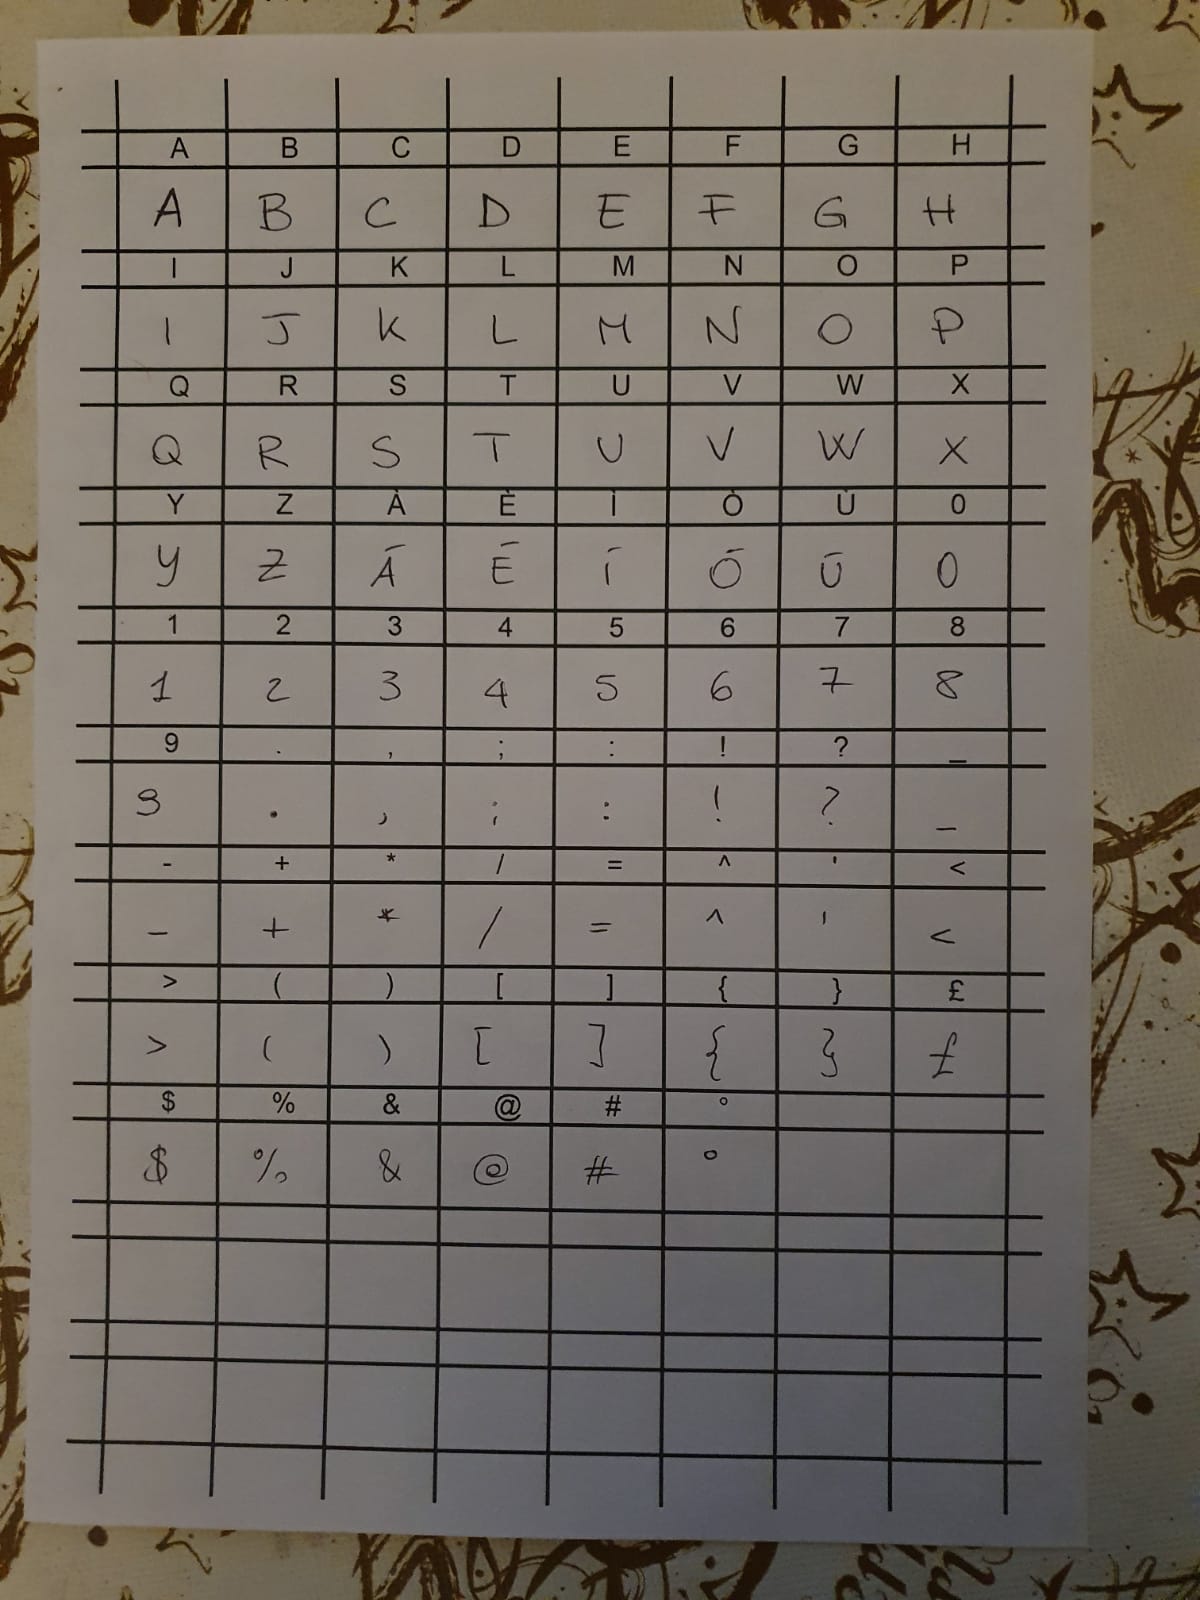 A B C D E F G H
A B C D E F G H
I J K L M N O P
I J K L M N O P
Q R S T U V W X
Q R S T U V W X
Y Z À È Ì Ò Ù 0
Y Z Ā Ē Ī Ō Ū 0
1 2 3 4 5 6 7 8
1 2 3 4 5 6 7 8
9 . , ; : ! ? _
9 . , ; : ! ? _
- + * / = ^ ' <
- + * / = ^ ' <
> ( ) [ ] { } £
> ( ) [ ] { } £
$ % & @ # °
$ % & @ # °